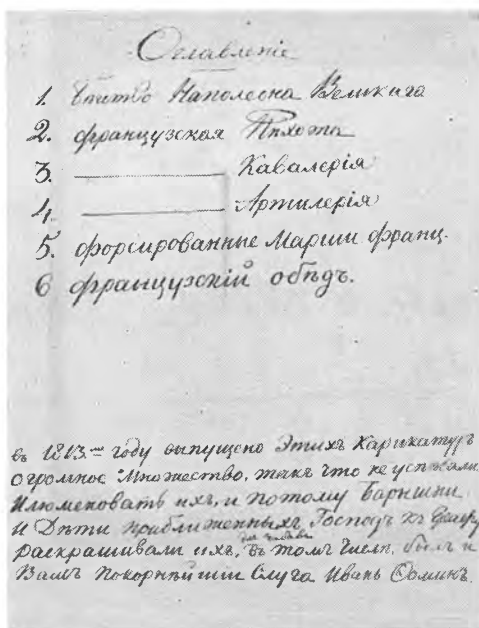 Оглавленіе
1. Бѣгство Наполеона Великаго
2. французская Пѣхота
3. ——— Кавалерія
4. ——— Артилерія
5. форсированные Марши франц.
6 французскій обѣдъ.
въ 1813-мъ году выпущено Этихъ Карикатуръ
огромное Множество, такъ что не успѣвали
Илюменовать ихъ, и потому Барышни
И Дѣти приближенныхъ Господъ къ Двору
раскрашивали ихъ, въ томъ Числѣ былъ и
Вашъ Покорнѣйшій Слуга Иванъ